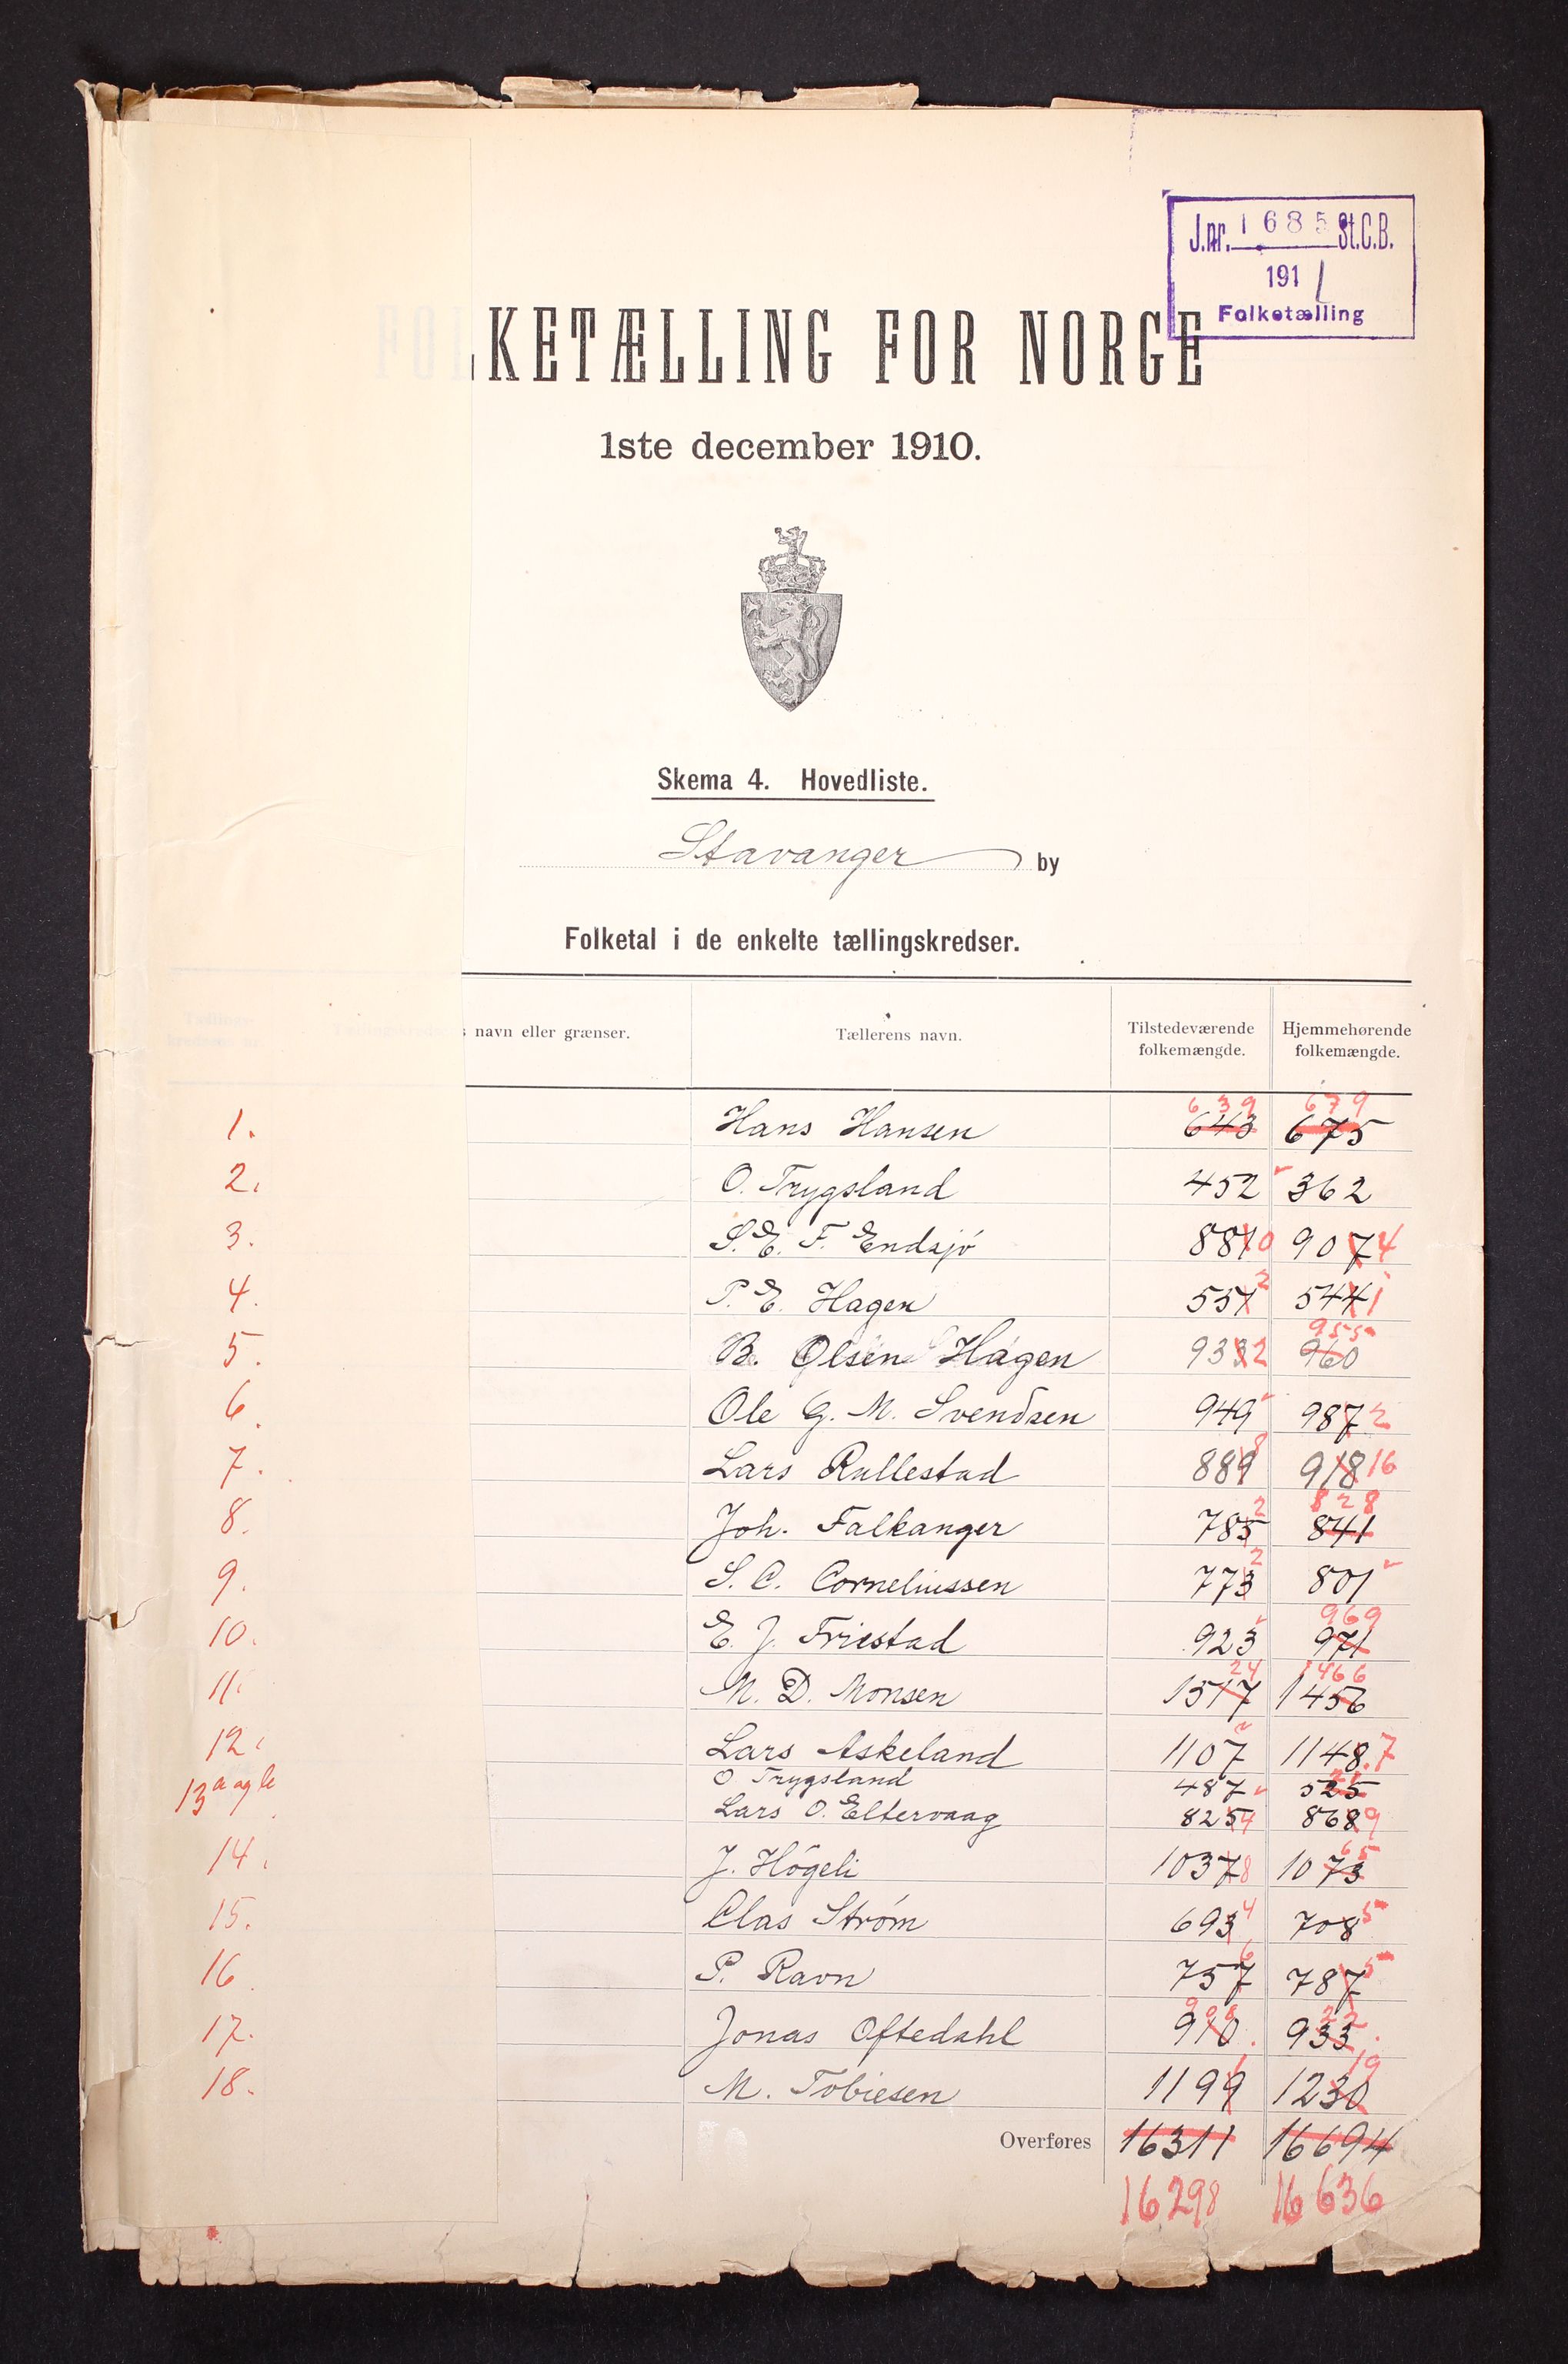 J.nr. 1685 St.C.B.
191 1
Folketælling
FOLKETÆLLING FOR NORGE
1ste december 1910.
Skema 4. Hovedliste.
Stavanger by
Folketal i de enkelte tællingskredser.
navn eller grænser. Tællerens navn. Tilstedeværende folkemængde. Hjemmehørende folkemængde.
639 679
1. Hans Hansen 643 675
2. O. Trygsland 452 362
3. S. E. F. Endsjö 881 0 907 4
4. P. E. Hagen 551 2 544 1
955
5. B. Olsen Hagen 933 2 960
6. Ole G. M. Svendsen 949 987 2
7. Lars Rullestad 889 8 918 16
828
8. Joh. Falkanger 785 2 841
9. S. C. Corneliussen 773 2 801
969
10. E. J. Friestad 923 971
24 1466
11. M. D. Monsen 1517 1456
12. Lars Askeland 1107 1148 7
13 a og b O Trygsland 487 525
Lars O. Eltervaag 825 4 868 9
65
14. J. Högeli 1037 8 1073
15. Clas Ström 693 4 708 5
16. P. Ravn 757 6 787 5
908 22
17. Jonas Oftedahl 910 933
18. M. Tobiesen 1199 1 1230 19
Overføres 16311 16694
16298 16636